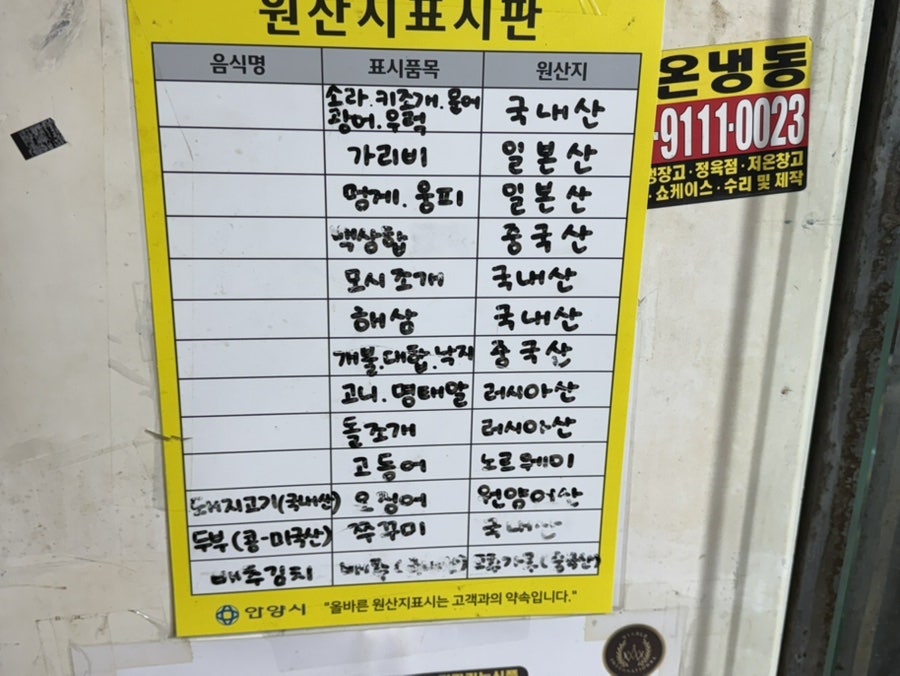 원산지표시판
음식명 표시품목 원산지
소라.키조개.문어
광어.우럭 국내산
가리비 일본산
멍게.웅피 일본산
백상합 중국산
모시조개 국내산
해삼 국내산
개불.대합.낙지 중국산
고니.명태알 러시아산
돌조개 러시아산
고등어 노르웨이
돼지고기(국내산) 오징어 원양어산
두부(콩-미국산) 쭈꾸미 국내산
배추김치 배추(국내산) 고춧가루(중국산)
안양시 "올바른 원산지표시는 고객과의 약속입니다."
온냉동
-9111-0023
냉장고·정육점·저온창고
쇼케이스·수리 및 제작